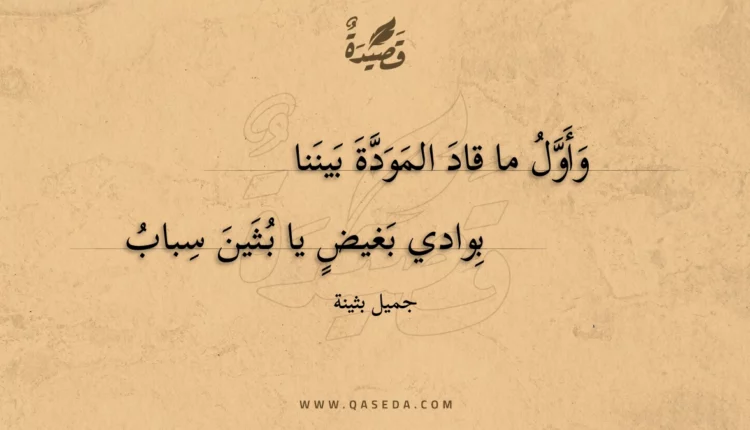 قَصِيدَةٌ
وَأَوَّلُ ما قادَ المَوَدَّةَ بَينَنا
بِوادي بَغيضٍ يا بُثَينَ سِبابُ
جميل بثينة
WWW.QASEDA.COM